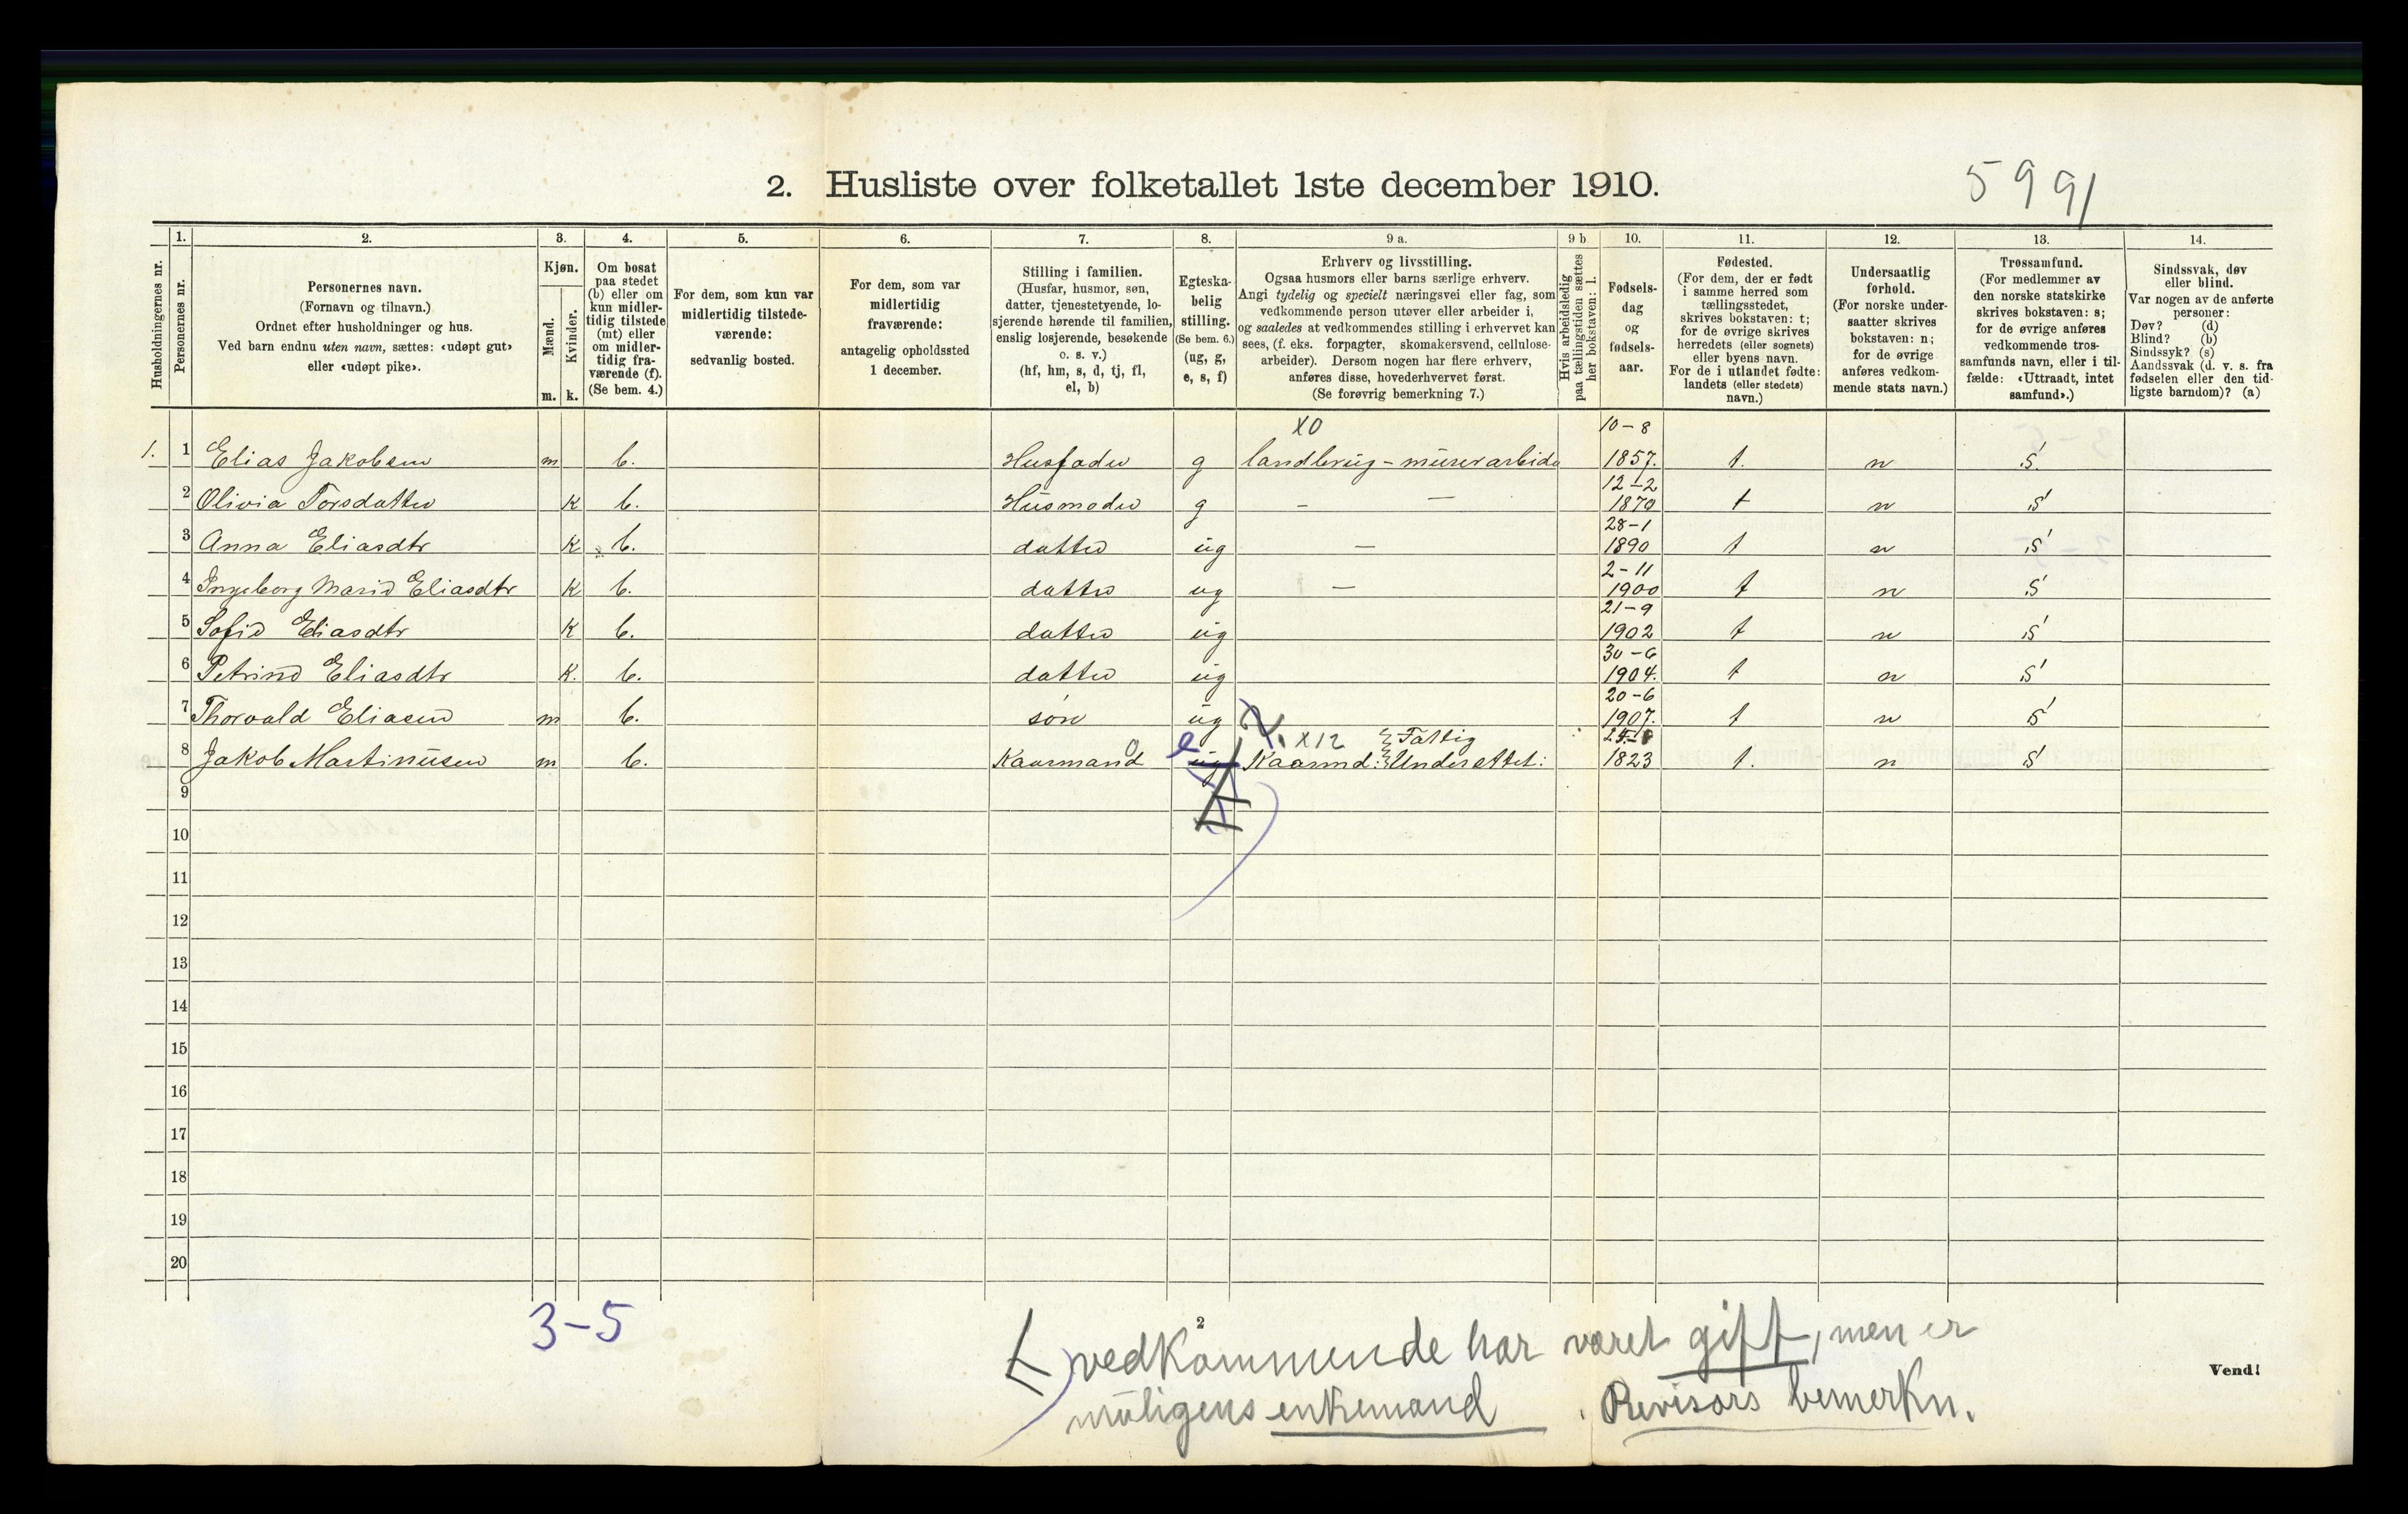 5991
2. Husliste over folketallet 1ste december 1910.
Husholdningernes nr.
1.
Personernes nr.
2.
Personernes navn.
(Fornavn og tilnavn.)
Ordnet efter husholdninger og hus.
Ved barn endnu uten navn, sættes: «udøpt gut»
eller «udøpt pike».
3.
Kjøn.
Mænd.
Kvinder.
m. k.
4.
Om bosat
paa stedet
(b) eller om
kun midler-
tidig tilstede
(mt) eller
om midler-
tidig fra-
værende (f).
(Se bem. 4.)
5.
For dem, som kun var
midlertidig tilstede-
værende:
sedvanlig bosted.
6.
For dem, som var
midlertidig
fraværende:
antagelig opholdssted
1 december.
7.
Stilling i familien.
(Husfar, husmor, søn,
datter, tjenestetyende, lo-
sjerende hørende til familien,
enslig losjerende, besøkende
o. s. v.)
(hf, hm, s, d, tj, fl,
el, b)
8.
Egteska-
belig
stilling.
(Se bem. 6.)
(ug, g,
e, s, f)
9 a.
Erhverv og livsstilling.
Ogsaa husmors eller barns særlige erhverv.
Angi tydelig og specielt næringsvei eller fag, som
vedkommende person utøver eller arbeider i,
og saaledes at vedkommendes stilling i erhvervet kan
sees, (f. eks. forpagter, skomakersvend, cellulose-
arbeider). Dersom nogen har flere erhverv,
anføres disse, hovederhvervet først.
(Se forøvrig bemerkning 7.)
9 b
Hvis arbeidsledig
paa tællingstiden sættes
her bokstaven: l.
10.
Fødsels-
dag
og
fødsels-
aar.
11.
Fødested.
(For dem, der er født
i samme herred som
tællingsstedet,
skrives bokstaven: t;
for de øvrige skrives
herredets (eller sognets)
eller byens navn.
For de i utlandet fødte:
landets (eller stedets)
navn.)
12.
Undersaatlig
forhold.
(For norske under-
saatter skrives
bokstaven: n;
for de øvrige
anføres vedkom-
mende stats navn.)
13.
Trossamfund.
(For medlemmer av
den norske statskirke
skrives bokstaven: s;
for de øvrige anføres
vedkommende tros-
samfunds navn, eller i til-
fælde: «Uttraadt, intet
samfund».)
14.
Sindssvak, døv
eller blind.
Var nogen av de anførte
personer:
Døv? (d)
Blind? (b)
Sindssyk? (s)
Aandssvak (d. v. s. fra
fødselen eller den tid-
ligste barndom)? (a)
X0 10-8
1. 1 Elias Jakobsen m b. Husfader g landbrug - murerarbeide 1857. t. n S.
12-2
2 Olivia Torsdatter K b. Husmoder g - - 1870 t n S
28-1
3 Anna Eliasdtr K b. datter ug - 1890 t n S
2-11
4 Ingeborg Marie Eliasdtr K b. datter ug - 1900 t n S
21-9
5 Sofie Eliasdtr K b. datter ug 1902 t n S
30-6
6 Petrine Eliasdtr K. b. datter ug 1904. t n S
20-6
7 Thorvald Eliasen m b. søn ug 1907. t n S
0 e X12 Fattig
8 Jakob Martinusen m b. Kaarmand ug Kaarmd: Understøttet: 1823 t. n S
9
10
11
12
13
14
15
16
17
18
19
20
3-5
2
vedkommende har været gift, men er
muligens enkemand. Revisors bemerkn.
Vend!